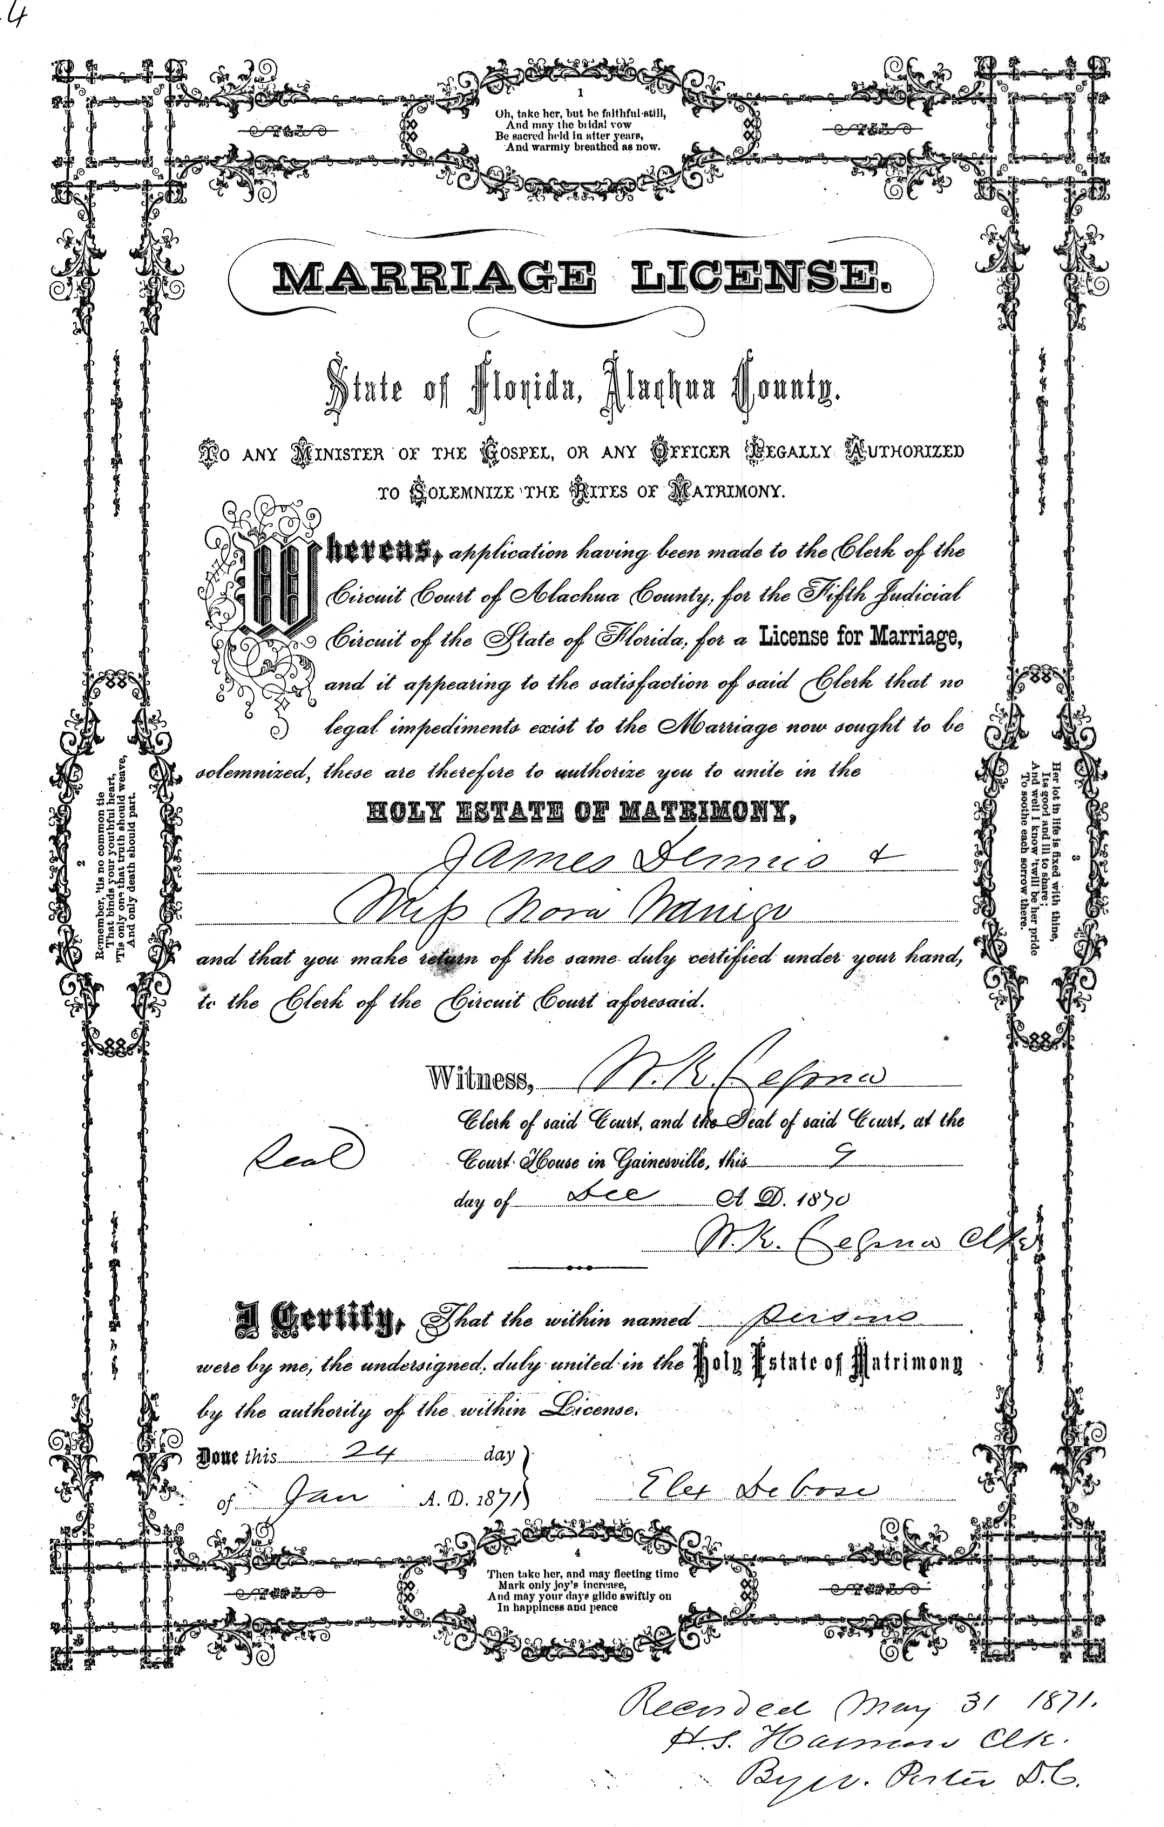 4
1
Oh, take her, but be faithful still,
And may the bridal vow
Be sacred held in after years,
And warmly breathed as now.
MARRIAGE LICENSE.
State of Florida, Alachua County.
TO ANY MINISTER OF THE GOSPEL, OR ANY OFFICER LEGALLY AUTHORIZED
TO SOLEMNIZE THE RITES OF MATRIMONY.
Whereas, application having been made to the Clerk of the
Circuit Court of Alachua County, for the Fifth Judicial
Circuit of the State of Florida, for a License for Marriage,
and it appearing to the satisfaction of said Clerk that no
legal impediments exist to the Marriage now sought to be
solemnized, these are therefore to authorize you to unite in the
HOLY ESTATE OF MATRIMONY,
James Dennis &
Miss Nora
and that you make return of the same duly certified under your hand,
to the Clerk of the Circuit Court aforesaid.
Witness, W. K. Cessna
Clerk of said Court, and the Seal of said Court, at the
Seal
Court House in Gainesville, this 9
day of Dec A. D. 1870
W. K. Cessna Clk
I Certify, That the within named persons
were by me, the undersigned, duly united in the Holy Estate of Matrimony
by the authority of the within License.
Done this 24 day
of Jan A. D. 1871
Elex Debose
2
Remember, 'tis no common tie
That binds your youthful heart,
'Tis only one that truth should weave,
And only death should part.
3
Her lot in life is fixed with thine,
Its good and ill to share;
And well I know 'twill be her pride
To soothe each sorrow there.
4
Then take her, and may fleeting time
Mark only joy's increase,
And may your days glide swiftly on
In happiness and peace
Recorded May 31 1871.
H. S. Harmon Clk.
By W. Porter D. C.